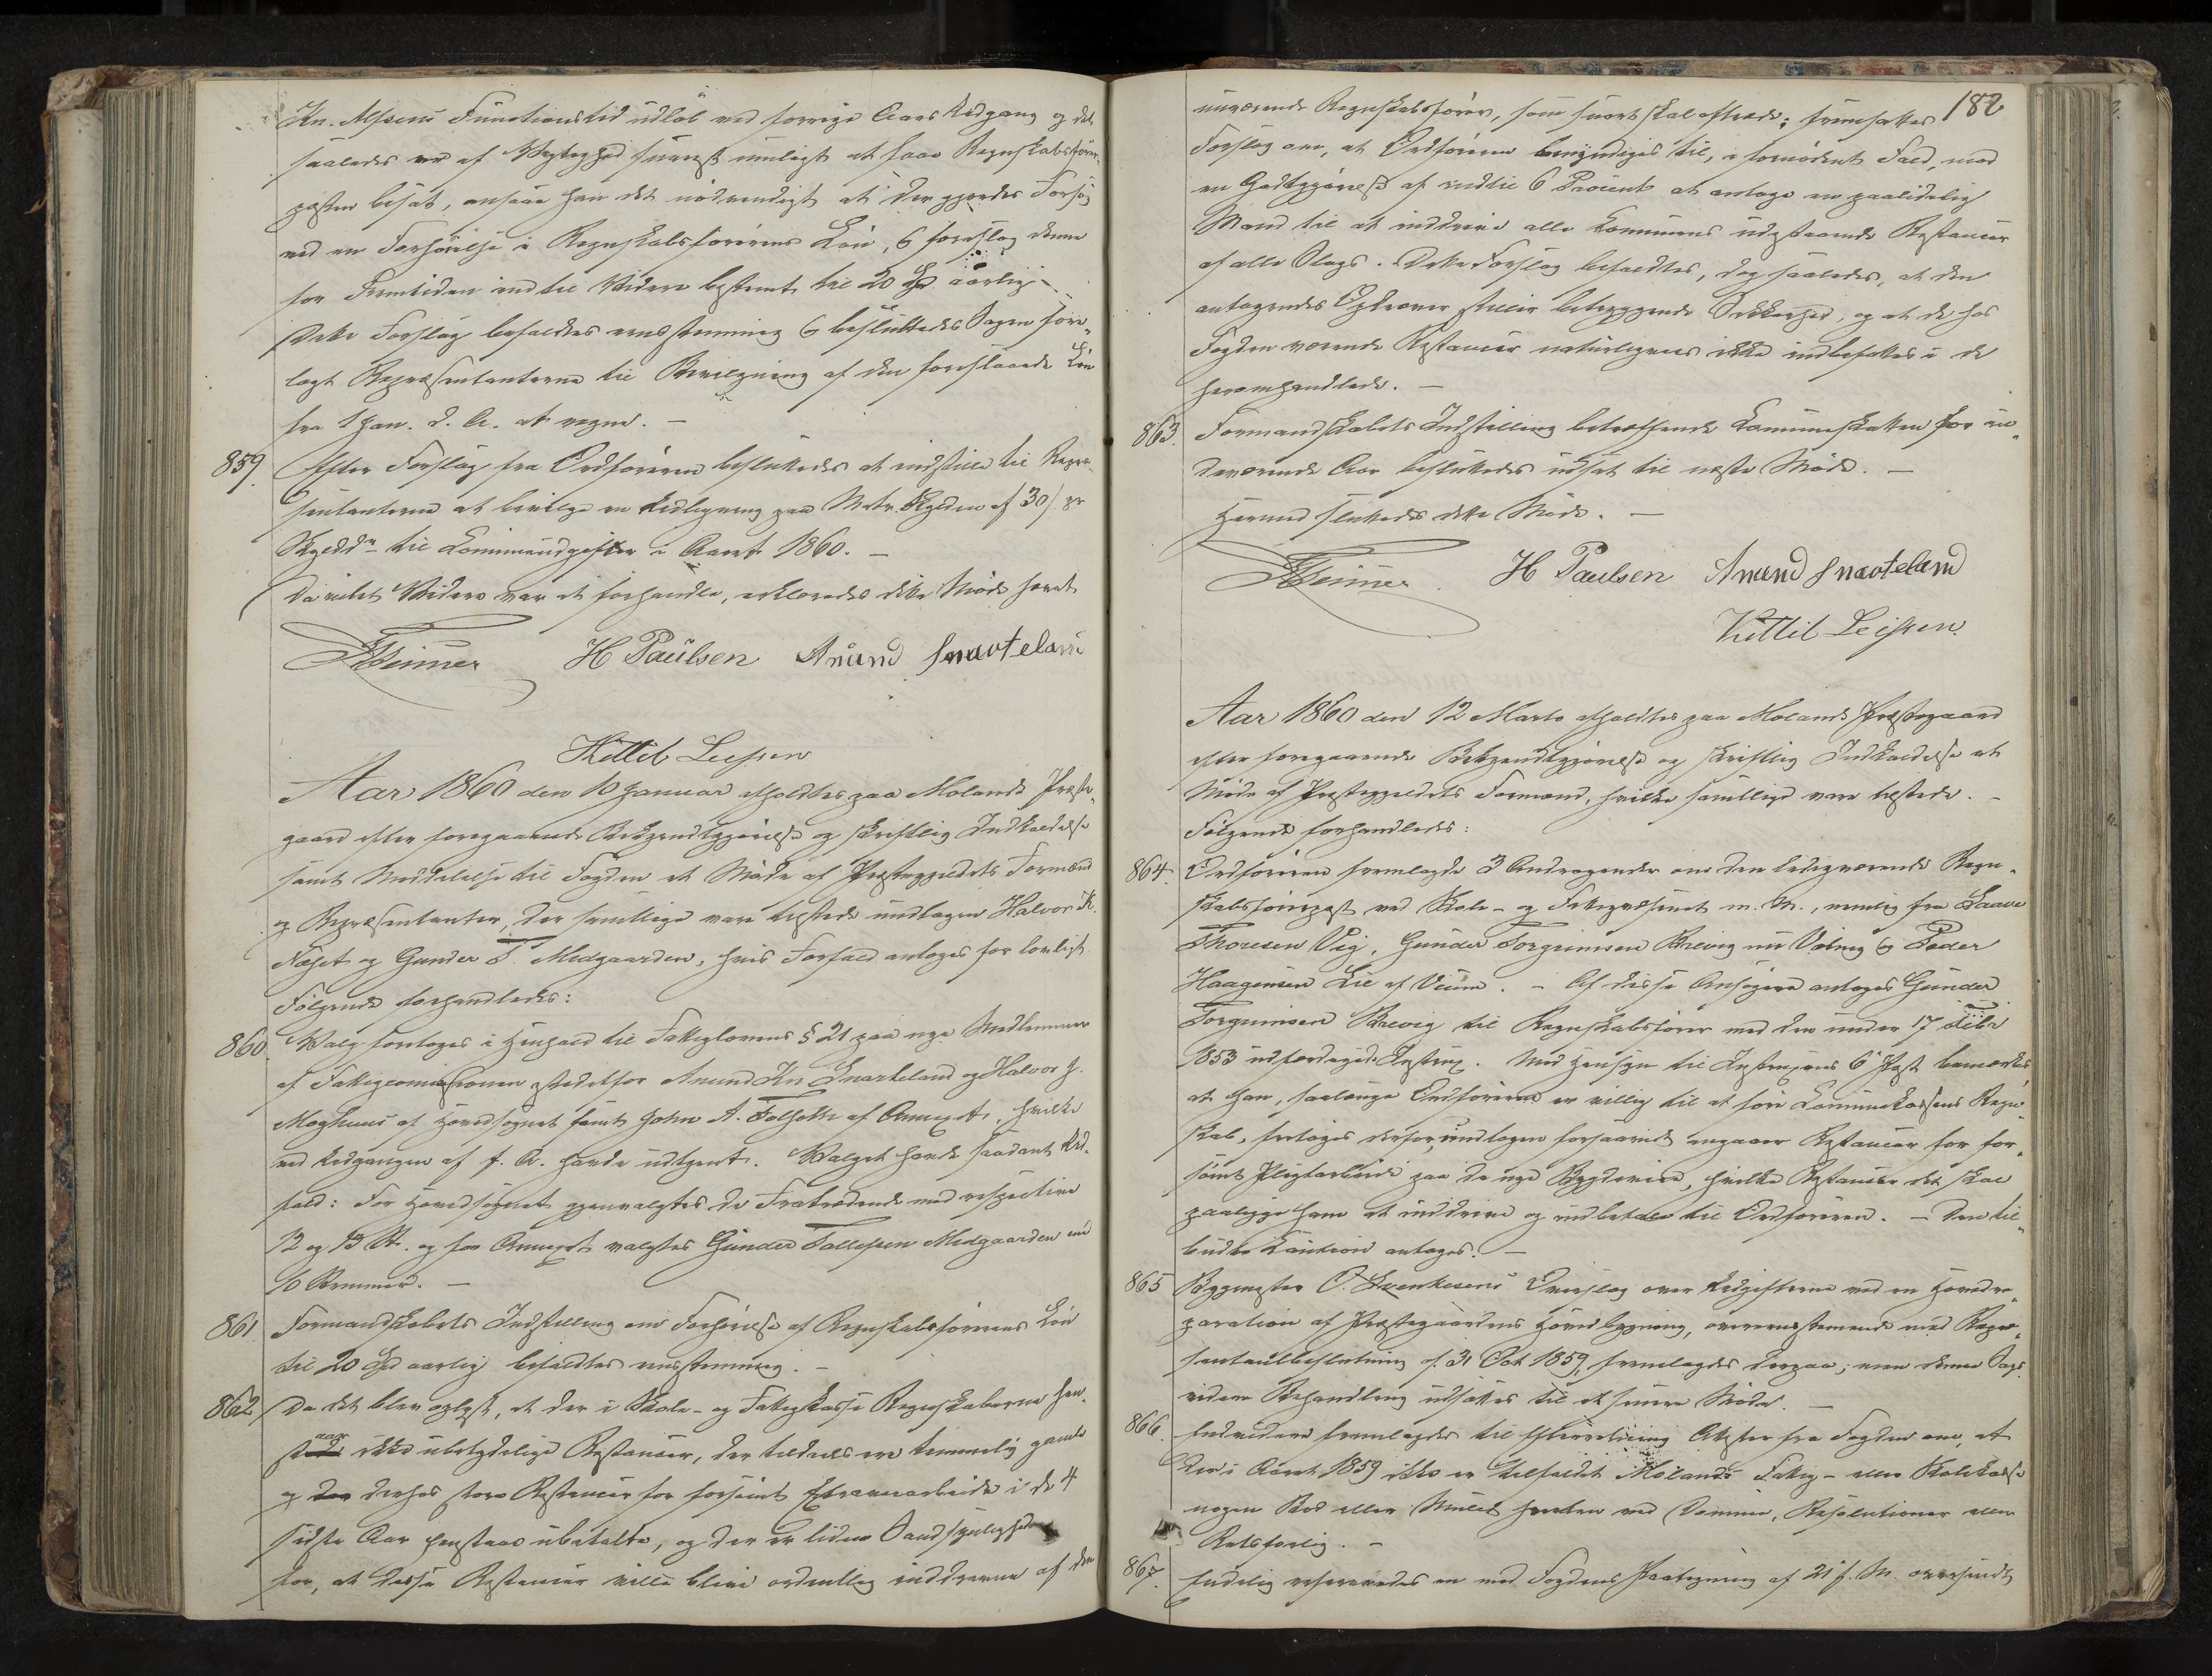 Kn. Alfsens Functionstid udløb ved forrige Aars Udgang og det
saaledes er af Vigtighed snarest muligt at faae Regnskabsfører-
posten besat, ansaae han det nødvendigt at der gjordes Forsøg
ved en Forhøielse i Regnskabsførerens Løn, & foreslog denne
for Fremtiden indtil Videre bestemt til 20 Spd aarlig.
Dette Forslag bifaldtes eenstemmig & besluttedes Sagen fore-
lagt Repræsentanterne til Bevilgning af den foreslaaede Løn
fra 1 Jan. d. A. at regne. —
859. Efter Forslag fra Ordføreren besluttedes at indstille til Repræ-
sentanterne at bevilge en Udligning paa Matr. Skylden af 30 / pr
Skylddr til Communudgifter i Aaret 1860. —
Da intet Videre var at forhandle, erklæredes dette Møde hævet
H Paulsen Anund Snarteland
Kittil Leifsen
Aar 1860 den 10 Januar afholdtes paa Molands Præste-
gaard efter foregaaende Bekjendtgjørelse og skriftlig Indkaldelse
samt Meddelelse til Fogden et Møde af Præstegjeldets Formænd
og Repræsentanter, der samtlige vare tilstede undtagen Halvor K.
Næset og Gunder T. Midgaarden, hvis Forfald antoges for lovligt.
Følgende forhandledes:
860. Valg foretoges i Henhold til Fattiglovens § 21 paa nye Medlemmer
af Fattigcommissionen istedetfor Anund Kn. Snarteland og Halvor J.
Moghuus af Hovedsognet samt John A. Folseth af Annexet, hvilke
ved Udgangen af f. A. havde udtjent. Valget havde saadant Ud-
fald: For Hovedsognet gjenvalgtes de Fratrædende med respective
12 og 13 St. og for Annexet valgtes Gunder Tallefsen Midgaarden med
10 Stemmer. —
861 Formandskabets Indstilling om Forhøielse af Regnskabsførerens Løn
til 20 Spd aarlig bifaldtes eenstemmig. —
862. Da det blev oplyst, at der i Skole- og Fattigkasse Regnskaberne hen-
staae ikke ubetydelige Restancer, der tildeels ere temmelig gamle
og derhos store Restancer for forsømt Arbeide i de 4
sidste Aar henstaae ubetalte, og der er liden Sandsynlighed
for, at disse Restancer ville blive ordentlig inddrevne af den
182
nuværende Regnskabsfører, som snart skal aftræde; fremsattes
Forslag om, at Ordføreren bemyndiges til, i fornødent Fald, mod
en Godtgjørelse af indtil 6 Procent at antage en paalidelig
Mand til at inddrive alle Communens udestaaende Restancer
af alle Slags. Dette Forslag bifaldtes, dog saaledes, at den
antagendes Opkræver stiller betryggende Sikkerhed, og at de hos
Fogden værende Restancer naturligviis ikke indbefattes i de
heromhandlede. —
863. Formandskabets Indstilling betræffende Communeskatten for in-
deværende Aar besluttedes udsat til næste Møde. —
Hermed sluttedes dette Møde. —
H Paulsen Anund Snarteland
Kittil Leifsen
Aar 1860 den 12 Marts afholdtes paa Molands Præstegaard
efter foregaaende Bekjendtgjørelse og skriftlig Indkaldelse et
Møde af Præstegjeldets Formænd, hvilke samtlige vare tilstede. —
Følgende forhandledes:
864. Ordføreren fremlagde 3 Andragender om den ledigværende Regn-
skabsførerpost ved Skole- og Fattigvæsenet m. M., nemlig fra Saave
Thoresen Vig, Gunder Torgrimsen Brevig og Peder
Haagensen Lie af Veum. — Af disse Ansøgere antoges Gunder
Torgrimsen Brevig til Regnskabsfører med den under 17
1853 udfærdigede Instrux. Med Hensyn til Instruxens 6te Post bemærkes
at han, saalænge Ordføreren er villig til at føre Communekassens Regn-
skab, fritages derfor, undtagen forsaavidt angaaer Restancer for for-
sømt Pligtarbeide paa de nye Bygdeveie, hvilke Restancer det skal
paaligge ham at inddrive og indbetale til Ordføreren. — Den til-
budte Caution antoges. —
865 Bygmester O. Svenkesens Overslag over Udgifterne ved en Hovedre-
paration af Præstegaardens Hovedbygning, overeensstemmende med Repræ-
sentantbeslutning af 31 Oct 1859, fremlagdes derpaa; men denne Sags
videre Behandling udsattes til et senere Møde. —
866. Endvidere fremlagdes til Efterretning Attester fra Fogden om, at
der i Aaret 1859 ikke er tilfaldet Molands Fattig- eller Skolekasse
nogen Bod eller Mulct hverken ved Domme, Resolutioner eller
Retsforlig. —
867. Endelig refereredes en med Fogdens Paategning af 21 f. M. oversendt